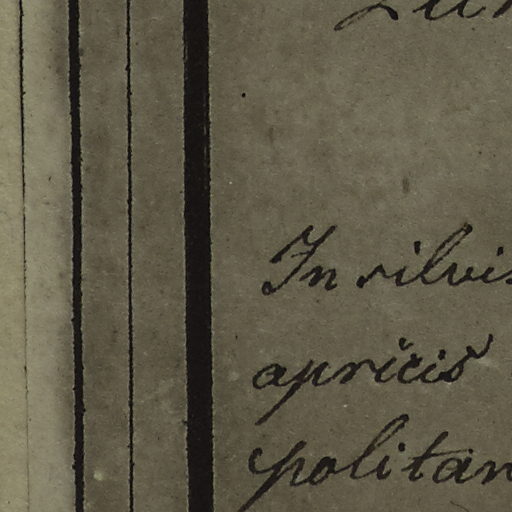 In silvis
apricis
politan